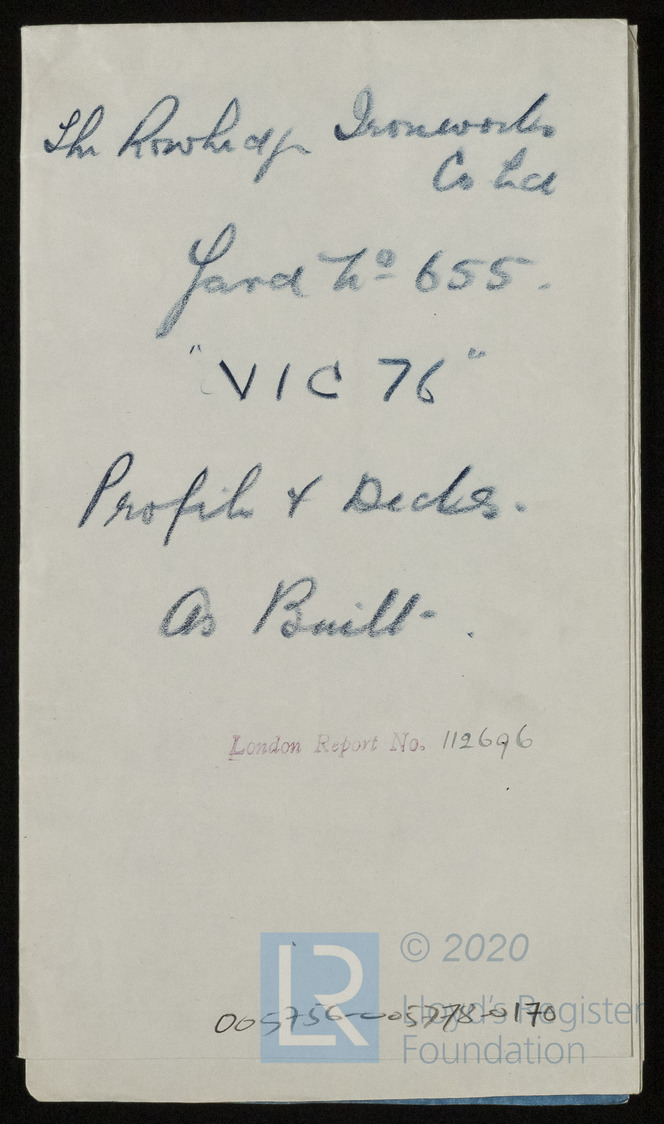 The Rowhedge Ironworks
Co Ltd
Yard No 655.
"VIC 76"
Profile & Decks.
As Built.
London Report No. 112696
LR
© 2020
Lloyd's Register
Foundation
005756-005778-0170